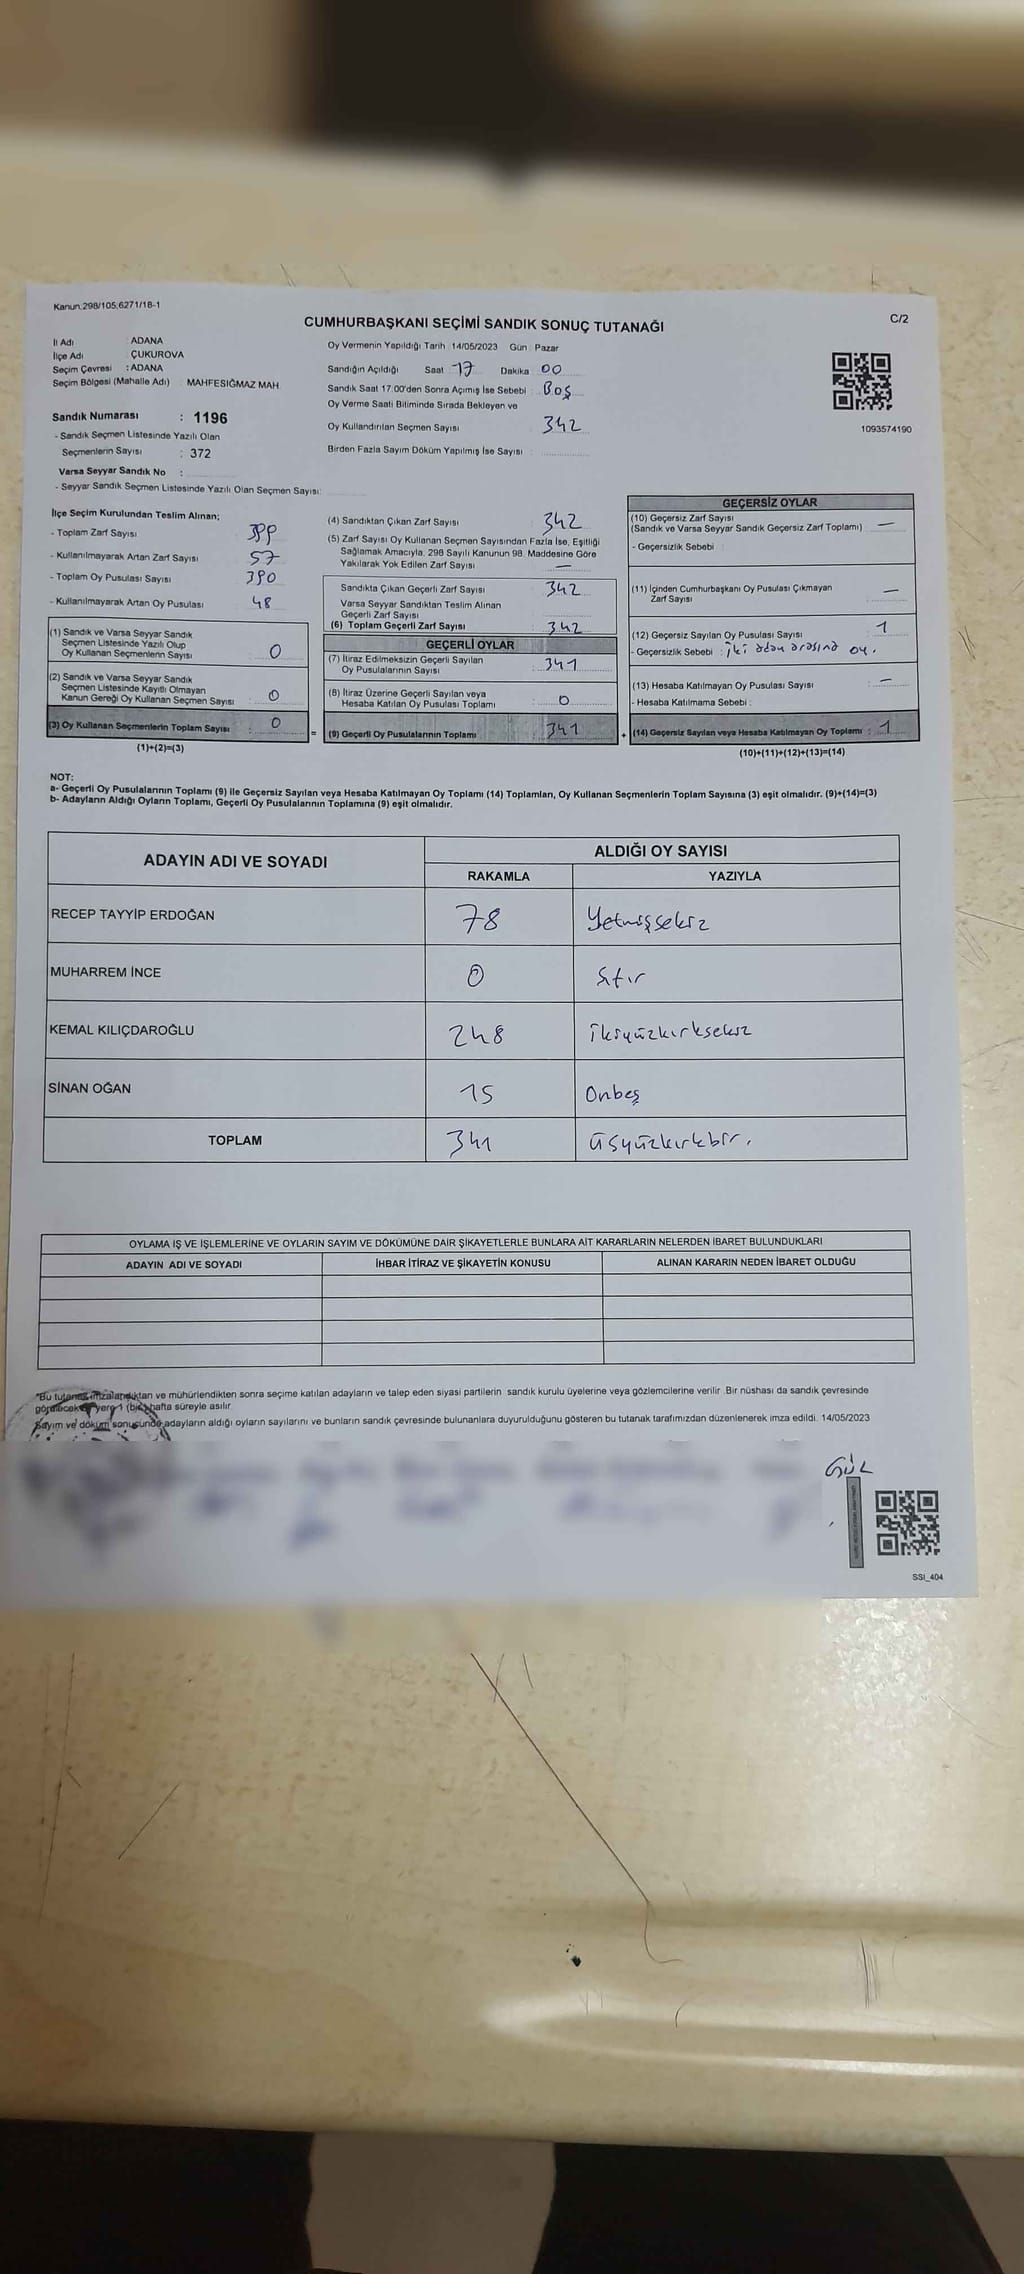 Kanun.298/105,6271/18-1
C/2
CUMHURBAŞKANI SEÇİMİ SANDIK SONUÇ TUTANAĞI
İl Adı : ADANA
İlçe Adı : ÇUKUROVA
Seçim Çevresi : ADANA
Seçim Bölgesi (Mahalle Adı) : MAHFESIĞMAZ MAH.
Sandık Numarası : 1196
- Sandık Seçmen Listesinde Yazılı Olan
Seçmenlerin Sayısı : 372
Varsa Seyyar Sandık No :
- Seyyar Sandık Seçmen Listesinde Yazılı Olan Seçmen Sayısı:
Oy Vermenin Yapıldığı Tarih : 14/05/2023 Gün : Pazar
Sandığın Açıldığı Saat 17 Dakika 00
Sandık Saat 17:00'den Sonra Açılmış İse Sebebi : Boş
Oy Verme Saati Bitiminde Sırada Bekleyen ve
Oy Kullandırılan Seçmen Sayısı 342
Birden Fazla Sayım Döküm Yapılmış İse Sayısı :
1093574190
İlçe Seçim Kurulundan Teslim Alınan;
- Toplam Zarf Sayısı 399
- Kullanılmayarak Artan Zarf Sayısı 57
- Toplam Oy Pusulası Sayısı 390
- Kullanılmayarak Artan Oy Pusulası 48
(1) Sandık ve Varsa Seyyar Sandık
Seçmen Listesinde Yazılı Olup
Oy Kullanan Seçmenlerin Sayısı : 0
(2) Sandık ve Varsa Seyyar Sandık
Seçmen Listesinde Kayıtlı Olmayan
Kanun Gereği Oy Kullanan Seçmen Sayısı : 0
(3) Oy Kullanan Seçmenlerin Toplam Sayısı : 0
(1)+(2)=(3)
(4) Sandıktan Çıkan Zarf Sayısı 342
(5) Zarf Sayısı Oy Kullanan Seçmen Sayısından Fazla İse, Eşitliği
Sağlamak Amacıyla, 298 Sayılı Kanunun 98. Maddesine Göre
Yakılarak Yok Edilen Zarf Sayısı : —
Sandıkta Çıkan Geçerli Zarf Sayısı : 342
Varsa Seyyar Sandıktan Teslim Alınan
Geçerli Zarf Sayısı
(6) Toplam Geçerli Zarf Sayısı : 342
GEÇERLİ OYLAR
(7) İtiraz Edilmeksizin Geçerli Sayılan
Oy Pusulalarının Sayısı : 341
(8) İtiraz Üzerine Geçerli Sayılan veya
Hesaba Katılan Oy Pusulası Toplamı : 0
= (9) Geçerli Oy Pusulalarının Toplamı : 341
GEÇERSİZ OYLAR
(10) Geçersiz Zarf Sayısı
(Sandık ve Varsa Seyyar Sandık Geçersiz Zarf Toplamı) : —
- Geçersizlik Sebebi :
(11) İçinden Cumhurbaşkanı Oy Pusulası Çıkmayan
Zarf Sayısı : —
(12) Geçersiz Sayılan Oy Pusulası Sayısı : 1
- Geçersizlik Sebebi : iki adan arasına oy.
(13) Hesaba Katılmayan Oy Pusulası Sayısı : —
- Hesaba Katılmama Sebebi :
+ (14) Geçersiz Sayılan veya Hesaba Katılmayan Oy Toplamı : 1
(10)+(11)+(12)+(13)=(14)
NOT:
a- Geçerli Oy Pusulalarının Toplamı (9) ile Geçersiz Sayılan veya Hesaba Katılmayan Oy Toplamı (14) Toplamları, Oy Kullanan Seçmenlerin Toplam Sayısına (3) eşit olmalıdır. (9)+(14)=(3)
b- Adayların Aldığı Oyların Toplamı, Geçerli Oy Pusulalarının Toplamına (9) eşit olmalıdır.
ADAYIN ADI VE SOYADI
ALDIĞI OY SAYISI
RAKAMLA YAZIYLA
RECEP TAYYİP ERDOĞAN 78 Yetmişsekiz
MUHARREM İNCE 0 Sıfır
KEMAL KILIÇDAROĞLU 248 ikiyüzkırksekiz
SİNAN OĞAN 15 Onbeş
TOPLAM 341 üsyüzkırkbir.
OYLAMA İŞ VE İŞLEMLERİNE VE OYLARIN SAYIM VE DÖKÜMÜNE DAİR ŞİKAYETLERLE BUNLARA AİT KARARLARIN NELERDEN İBARET BULUNDUKLARI
ADAYIN ADI VE SOYADI İHBAR İTİRAZ VE ŞİKAYETİN KONUSU ALINAN KARARIN NEDEN İBARET OLDUĞU
"Bu tutanak imzalandıktan ve mühürlendikten sonra seçime katılan adayların ve talep eden siyasi partilerin sandık kurulu üyelerine veya gözlemcilerine verilir. Bir nüshası da sandık çevresinde
görülecek bir yere 1 (bir) hafta süreyle asılır.
Sayım ve döküm sonucunda adayların aldığı oyların sayılarını ve bunların sandık çevresinde bulunanlara duyurulduğunu gösteren bu tutanak tarafımızdan düzenlenerek imza edildi. 14/05/2023
GÜL
SSI_404